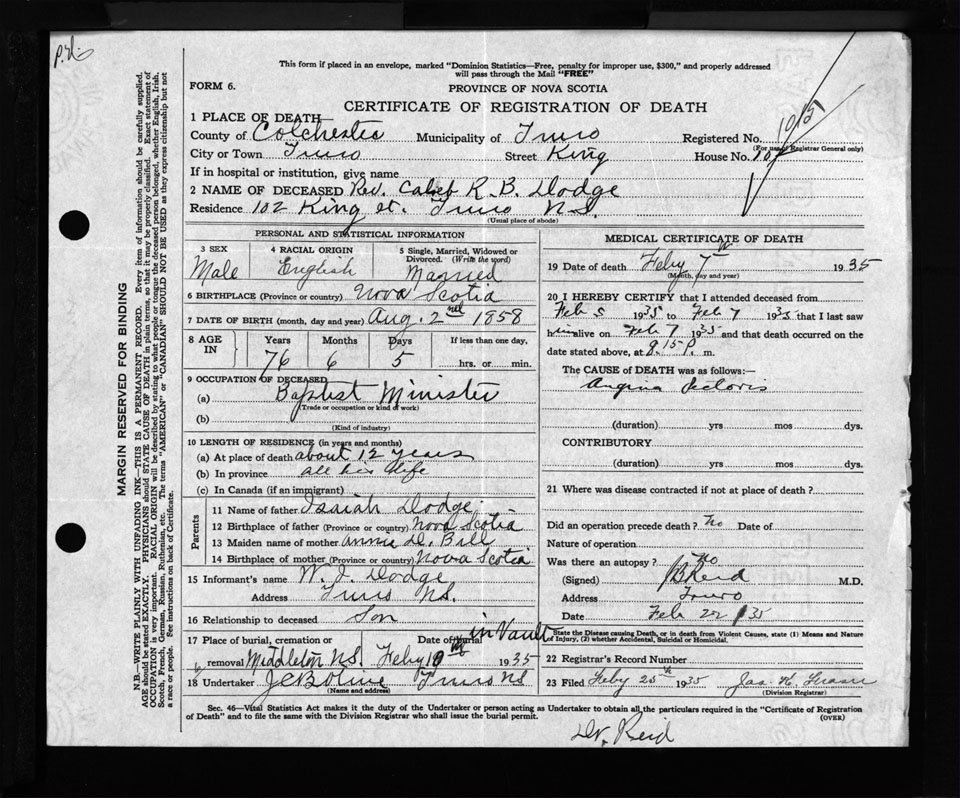 This form if placed in an envelope, marked "Dominion Statistics—Free, penalty for improper use, $300," and properly addressed
will pass through the Mail "FREE"
FORM 6.
PROVINCE OF NOVA SCOTIA
CERTIFICATE OF REGISTRATION OF DEATH
1 PLACE OF DEATH
County of Colchester Municipality of Truro Registered No.
(For use of Registrar General only)
City or Town Truro Street King House No.
If in hospital or institution, give name
2 NAME OF DECEASED Rev. Caleb R. B. Dodge
Residence 102 King St. Truro N.S.
(Usual place of abode)
PERSONAL AND STATISTICAL INFORMATION
3 SEX 4 RACIAL ORIGIN 5 Single, Married, Widowed or
Divorced. (Write the word)
Male English Married
6 BIRTHPLACE (Province or country) Nova Scotia
7 DATE OF BIRTH (month, day and year) Aug. 2nd 1858
8 AGE IN Years Months Days If less than one day,
76 6 5 hrs. or min.
9 OCCUPATION OF DECEASED
(a) Baptist Minister
(Trade or occupation or kind of work)
(b)
(Kind of industry)
10 LENGTH OF RESIDENCE (in years and months)
(a) At place of death about 12 years
(b) In province all his life
(c) In Canada (if an immigrant)
Parents
11 Name of father Isaiah Dodge
12 Birthplace of father (Province or country) Nova Scotia
13 Maiden name of mother Annie D. Bill
14 Birthplace of mother (Province or country) Nova Scotia
15 Informant's name W. I. Dodge
Address Truro N.S.
16 Relationship to deceased Son
17 Place of burial, cremation or Date of burial in Vault
removal Middleton N.S. Feby 10th 1935
18 Undertaker Truro N.S.
(Name and address)
MEDICAL CERTIFICATE OF DEATH
19 Date of death Feby 7th 1935
(Month, day and year)
20 I HEREBY CERTIFY that I attended deceased from
Feb 5 1935 to Feb 7 1935 that I last saw
him alive on Feb 7 1935 and that death occurred on the
date stated above, at 9.15 P. m.
The CAUSE of DEATH was as follows:—
Angina Pectoris
(duration) yrs mos dys.
CONTRIBUTORY
(duration) yrs mos dys.
21 Where was disease contracted if not at place of death?
Did an operation precede death? No Date of
Nature of operation
Was there an autopsy? No
(Signed) Reid M.D.
Address Truro
Date Feb 22 35
State the Disease causing Death, or in death from Violent Causes, state (1) Means and Nature
of Injury, (2) whether Accidental, Suicidal or Homicidal.
22 Registrar's Record Number
23 Filed Feby 25th 1935 Jas. Fraser
(Division Registrar)
Sec. 46—Vital Statistics Act makes it the duty of the Undertaker or person acting as Undertaker to obtain all the particulars required in the "Certificate of Registration
of Death" and to file the same with the Division Registrar who shall issue the burial permit.
(OVER)
Dr. Reid
MARGIN RESERVED FOR BINDING
N.B.—WRITE PLAINLY WITH UNFADING INK—THIS IS A PERMANENT RECORD. Every item of information should be carefully supplied.
AGE should be stated EXACTLY. PHYSICIANS should STATE CAUSE OF DEATH in plain terms, so that it may be properly classified. Exact statement of
OCCUPATION is very important. RACIAL ORIGIN will be described by stating to what people or tongue the deceased person belonged, whether English, Irish,
Scotch, French, German, Russian, Ruthenian, etc. The terms "AMERICAN" or "CANADIAN" SHOULD NOT BE USED as they express citizenship but not
a race or people. See instructions on back of Certificate.